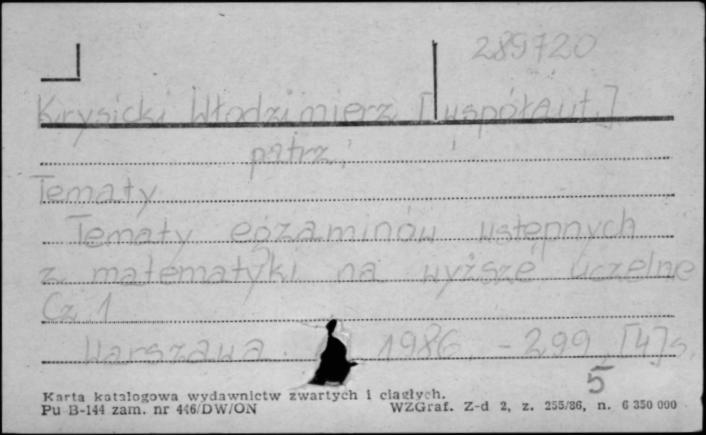 289720
Krysicki Włodzimierz [współaut.]
patrz:
Tematy
Tematy egzaminów wstępnych
z matematyki na wyższe uczelnie
Cz. 1
Warszawa 1986. - 299, [4] s.
5
Karta katalogowa wydawnictw zwartych i ciągłych.
Pu B-144 zam. nr 446/DW/ON WZGraf. Z-d 2, z. 255/86, n. 6 350 000